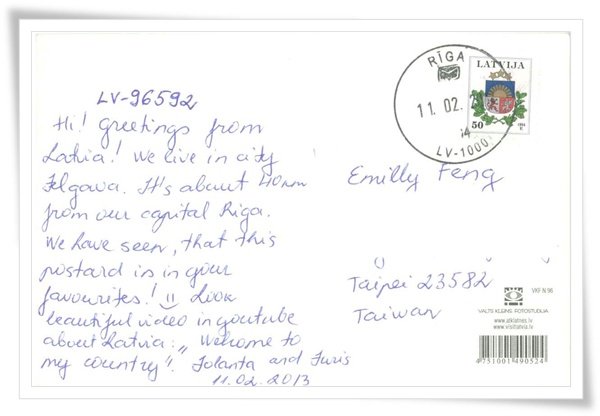 LV-96592
Hi! Greetings from
Latvia! We live in city
Jelgawa. It's about 40km
from our capital Riga.
We have seen, that this
postard is in your
favourites! Look
beautiful video in youtube
about Latvia: „Welcome to
my country". Jolanta and Juris
11.02.2013
RĪGA
11.02.
LV-1000
LATVIJA
50
Emilly Feng
Taipei 23582
Taiwan
VKF N 96
VALTS KLEINS FOTOSTUDIJA
www.atklatnes.lv
www.visitlatvia.lv
4751001490524